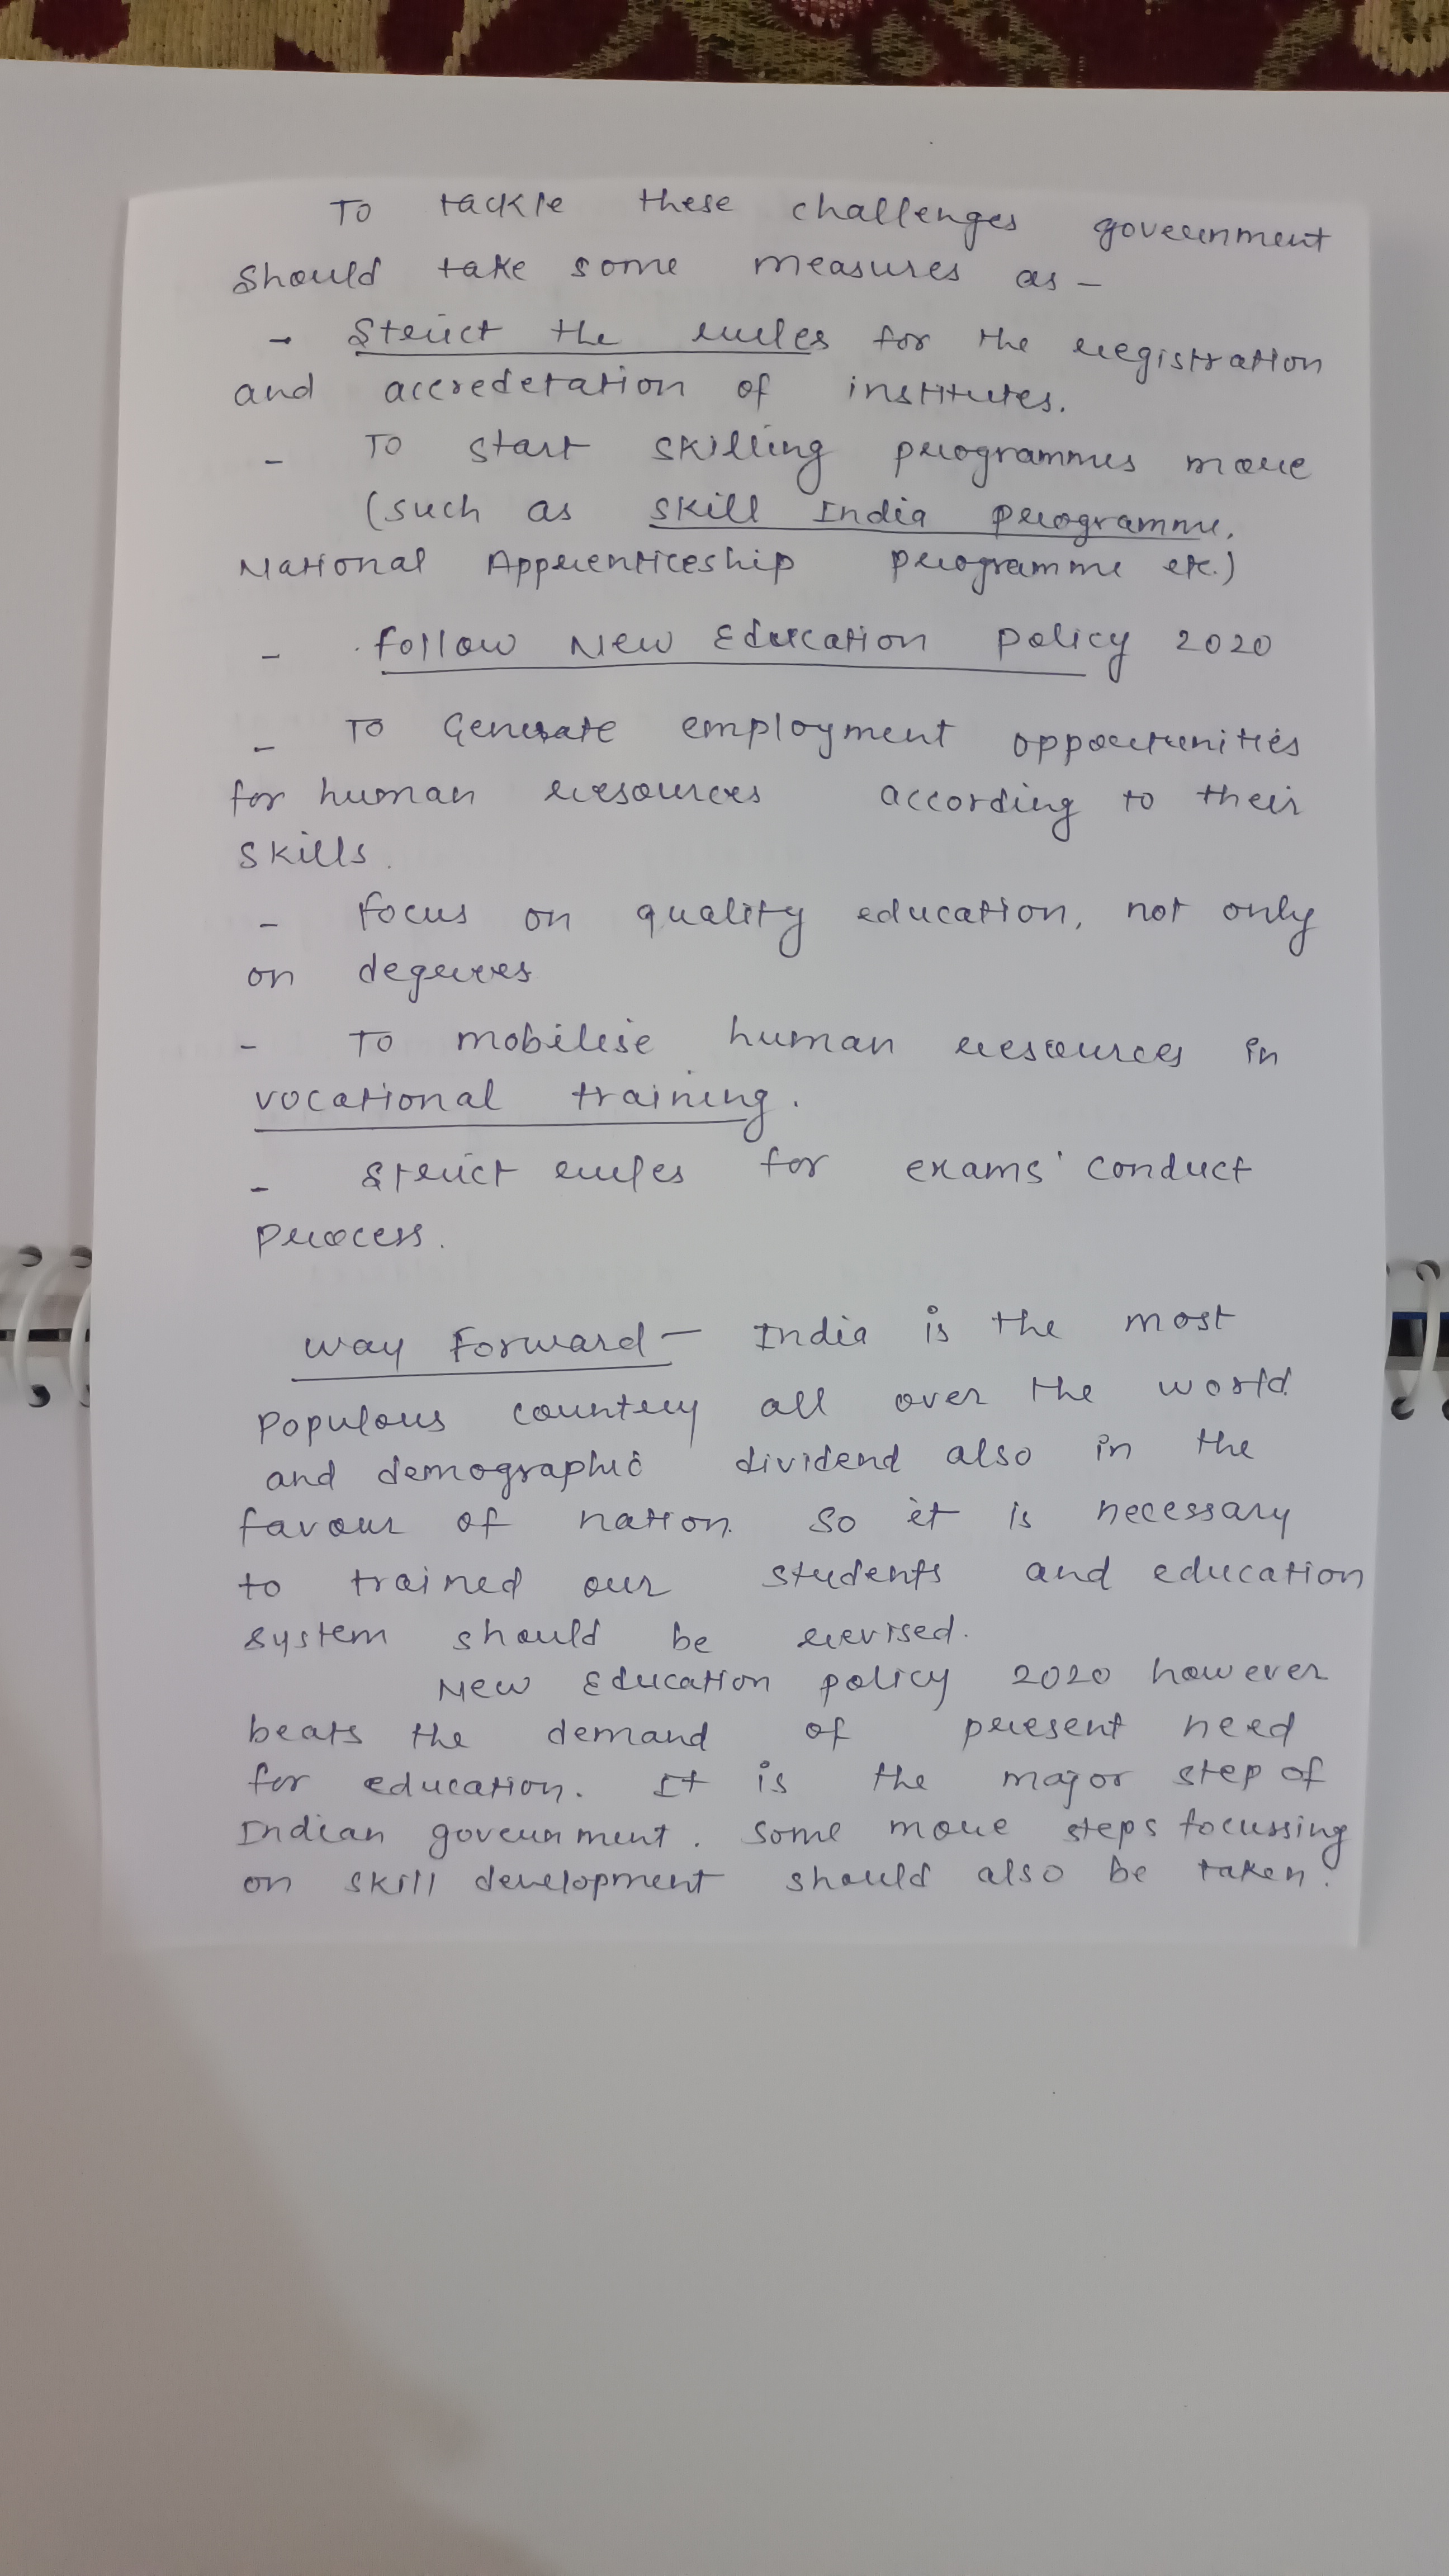 To tackle these challenges government
should take some measures as –
- Strict the rules for the registration
and accredetation of institutes.
- To start skilling programmes more
(such as Skill India programme,
National Apprenticeship programme etc.)
- follow New Education Policy 2020
- To Generate employment opportunities
for human resources according to their
skills.
- focus on quality education, not only
on degrees
- To mobilise human resources in
vocational training.
- Strict rules for exams' conduct
process.
Way Forward – India is the most
populous country all over the world
and demographic dividend also in the
favour of nation. So it is necessary
to trained our students and education
system should be revised.
New Education policy 2020 however
beats the demand of present need
for education. It is the major step of
Indian government. Some more steps focussing
on skill development should also be taken.